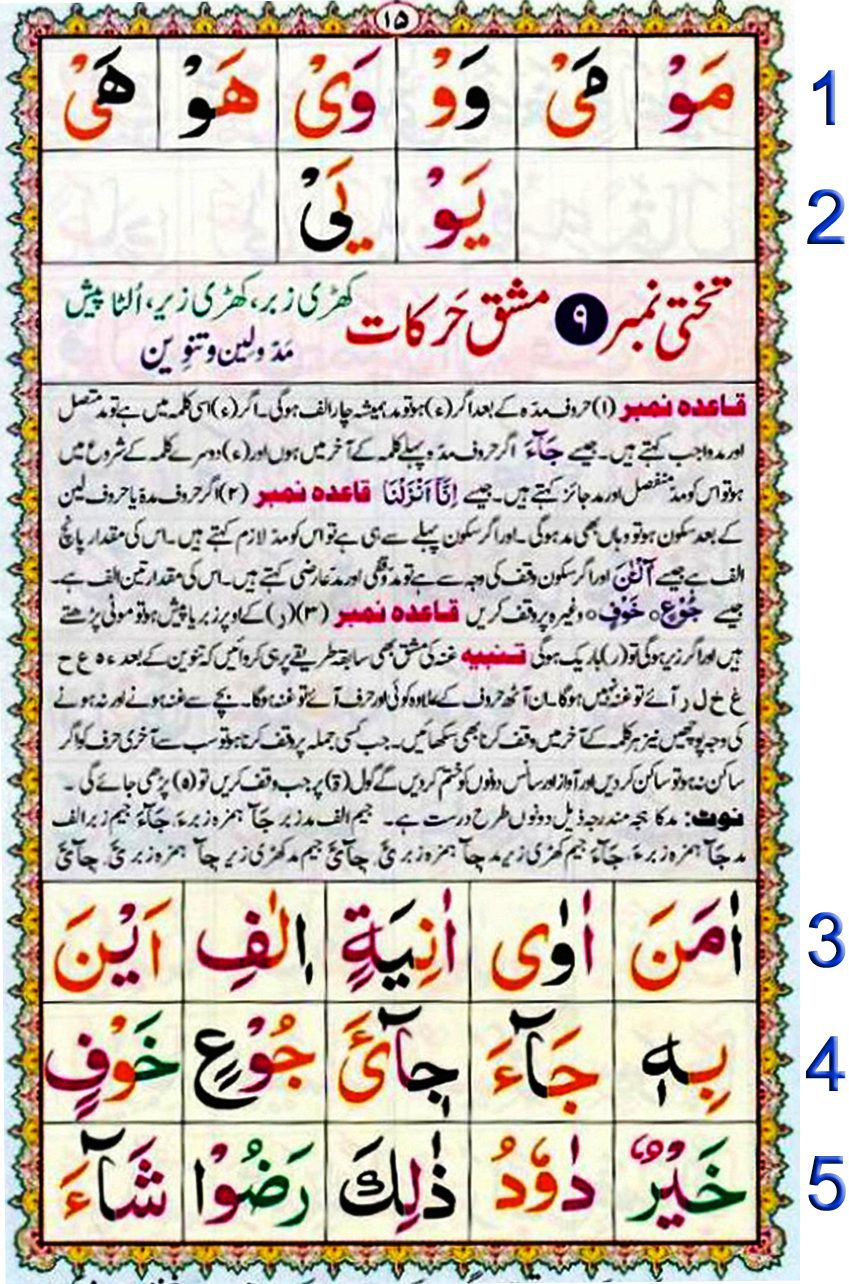 ١٥
مَوْ مَیْ وَوْ وَیْ هَوْ هَیْ 1
یَوْ یَیْ 2
تختی نمبر ۹ مشق حَرَکات کھڑی زبر، کھڑی زیر، اُلٹا پیش
مَدّ و لین و تنوِین
قاعدہ نمبر (۱) حروف مدّہ کے بعد اگر (ء) ہو تو مد ہمیشہ چار الف ہوگی۔ اگر (ء) اسی کلمہ میں ہے تو مد متصل
اور مد واجب کہتے ہیں۔ جیسے جَآءَ اگر حروف مدّہ پہلے کلمہ کے آخر میں ہوں اور (ء) دوسرے کلمہ کے شروع میں
ہو تو اس کو مدّ منفصل اور مد جائز کہتے ہیں۔ جیسے اِنَّآ اَنْزَلْنَا قاعدہ نمبر (۲) اگر حروف مدّہ یا حروف لین
کے بعد سکون ہو تو وہاں بھی مد ہوگی۔ اور اگر سکون پہلے سے ہی ہے تو اس کو مدّ لازم کہتے ہیں۔ اس کی مقدار پانچ
الف ہے جیسے آٰلْـٰٔنَ اور اگر سکون وقف کی وجہ سے ہے تو مد وقفی اور مد عارضی کہتے ہیں۔ اس کی مقدار تین الف ہے۔
جیسے جُوْعٍ۝ خَوْفٍ۝ وغیرہ پر وقف کریں قاعدہ نمبر (۳) (ر) کے اوپر زبر یا پیش ہو تو موٹی پڑھتے
ہیں اور اگر زیر ہوگی تو (ر) باریک ہوگی تنبیہ غنہ کی مشق بھی سابقہ طریقے پر ہی کروائیں کہ تنوین کے بعد ء ہ ع ح
غ خ ل ر آئے تو غنہ نہیں ہوگا۔ ان آٹھ حروف کے علاوہ کوئی اور حرف آئے تو غنہ ہوگا۔ بچے سے غنہ ہونے اور نہ ہونے
کی وجہ پوچھیں نیز ہر کلمہ کے آخر میں وقف کرنا بھی سکھائیں۔ جب کسی جملہ پر وقف کرنا ہو تو سب سے آخری حرف کو اگر
ساکن نہ ہو تو ساکن کر دیں اور آواز اور سانس دونوں کو ختم کر دیں گے گول (ۃ) پر جب وقف کریں تو (ہ) پڑھی جائے گی۔
نوٹ: مد کا ہجہ مندرجہ ذیل دونوں طرح درست ہے۔ جیم الف مد زبر جآ ہمزہ زبر ءَ، جَآءَ جیم زبر الف
مد جَآ ہمزہ زبر ءَ، جَآءَ جیم کھڑی زیر مد جِآ ہمزہ زبر ئَ، جِآئَ جیم مد کھڑی زیر جِآ ہمزہ زبر ئَ، جِآئَ
اٰمَنَ اٰوٰی اٰنِیَةٍ اٖلٰفِ اَیْنَ 3
بِهٖ جَآءَ جِایْٓئَ جُوْعٍ خَوْفٍ 4
خَیْرٌ دَاوٗدُ ذٰلِكَ رَضُوْا شَآءَ 5